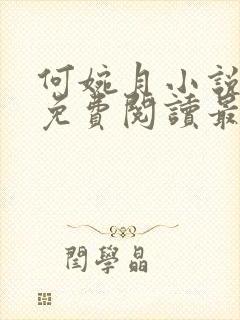 何婉月小說
免費閱讀最
閆學晶